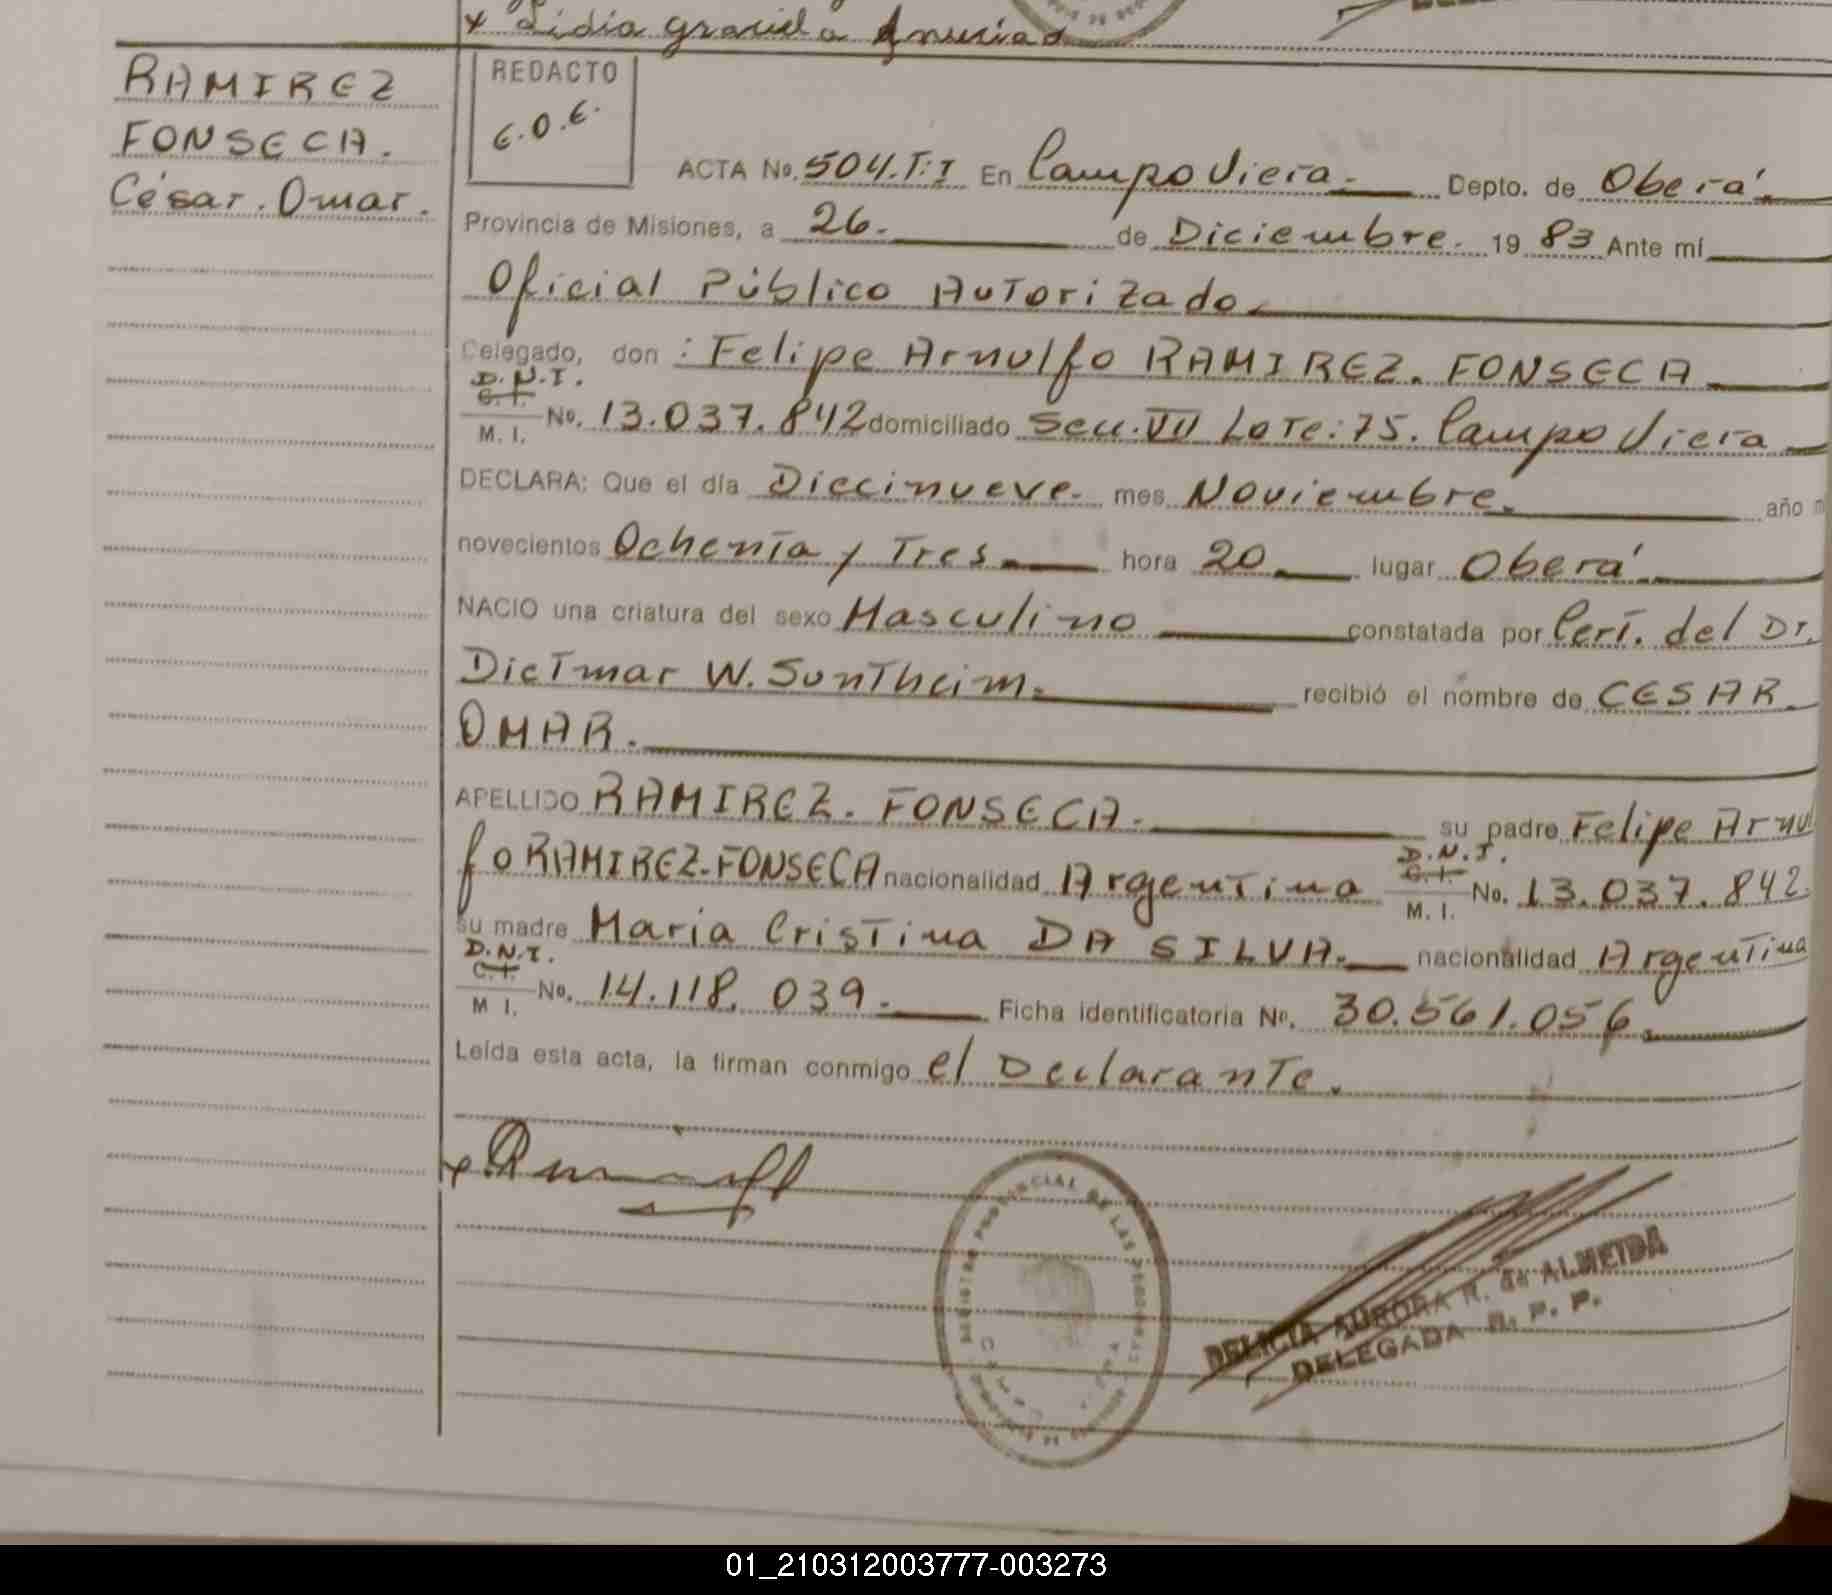 x Lidia graciela Anuncia
RAMIREZ
FONSECA.
César. Omar.
REDACTO
E.O.E.
ACTA No. 504.T:I En Campo Viera. Depto. de Oberá.
Provincia de Misiones, a 26. de Diciembre. 19 83 Ante mí
Oficial Público Autorizado.
Delegado, don : Felipe Arnulfo RAMIREZ. FONSECA
D.N.I.
C. I.
M. I. No. 13.037.842 domiciliado Secc. VII Lote: 75. Campo Viera
DECLARA: Que el día Diecinueve. mes Noviembre. año m
novecientos Ochenta y Tres hora 20 lugar Oberá.
NACIO una criatura del sexo Masculino constatada por Cert. del Dr.
Dietmar W. Suntheim. recibió el nombre de CESAR
OMAR.
APELLIDO RAMIREZ. FONSECA. su padre Felipe Arnul
fo RAMIREZ-FONSECA nacionalidad Argentina D.N.I. C. I. M. I. No. 13.037.842.
su madre Maria Cristina DA SILVA. nacionalidad Argentina
D.N.I.
C. I.
M I. No. 14.118.039. Ficha identificatoria No. 30.561.056.
Leída esta acta, la firman conmigo el Declarante.
REGISTRO PROVINCIAL DE LAS PERSONAS
DELICIA AURORA R. de ALMEIDA
DELEGADA R. P. P.
01_210312003777-003273